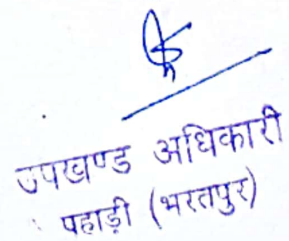 उपखण्ड अधिकारी
पहाड़ी (भरतपुर)